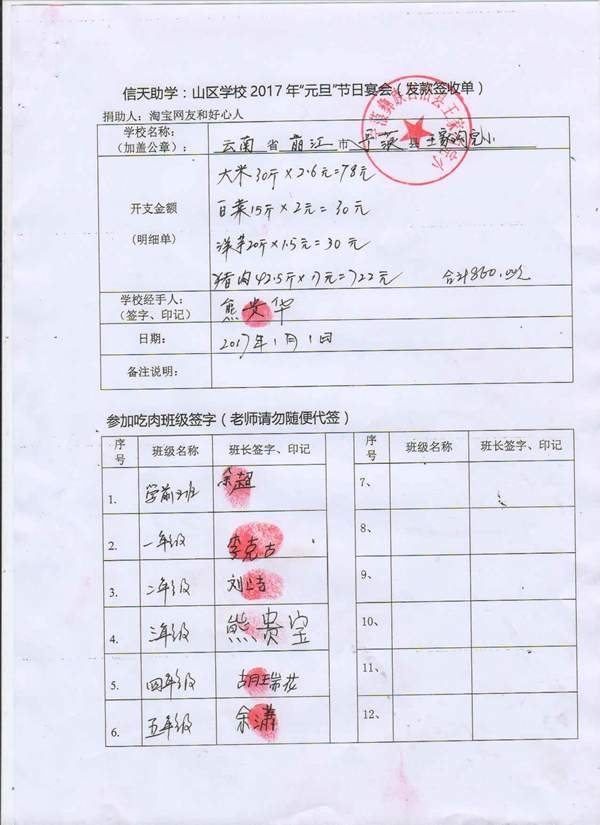 信天助学：山区学校 2017 年“元旦”节日宴会（发款签收单）
捐助人：淘宝网友和好心人
学校名称：
（加盖公章）：
云南 省 丽江 市 宁蒗 县 王家沟完小
开支金额
（明细单）
大米30斤×2.6元=78元
白菜15斤×2元=30元
洋芋20斤×1.5元=30元
猪肉42.5斤×17元=722元 合计860.
学校经手人：
（签字、印记）
熊贵华
日期：
2017年1月1日
备注说明：
参加吃肉班级签字（老师请勿随便代签）
序号 班级名称 班长签字、印记 序号 班级名称 班长签字、印记
1. 学前班 余超 7、
2. 一年级 李克古 8、
3. 二年级 刘 9、
4. 三年级 熊贵宝 10、
5. 四年级 胡瑞花 11、
6. 五年级 余潇 12、